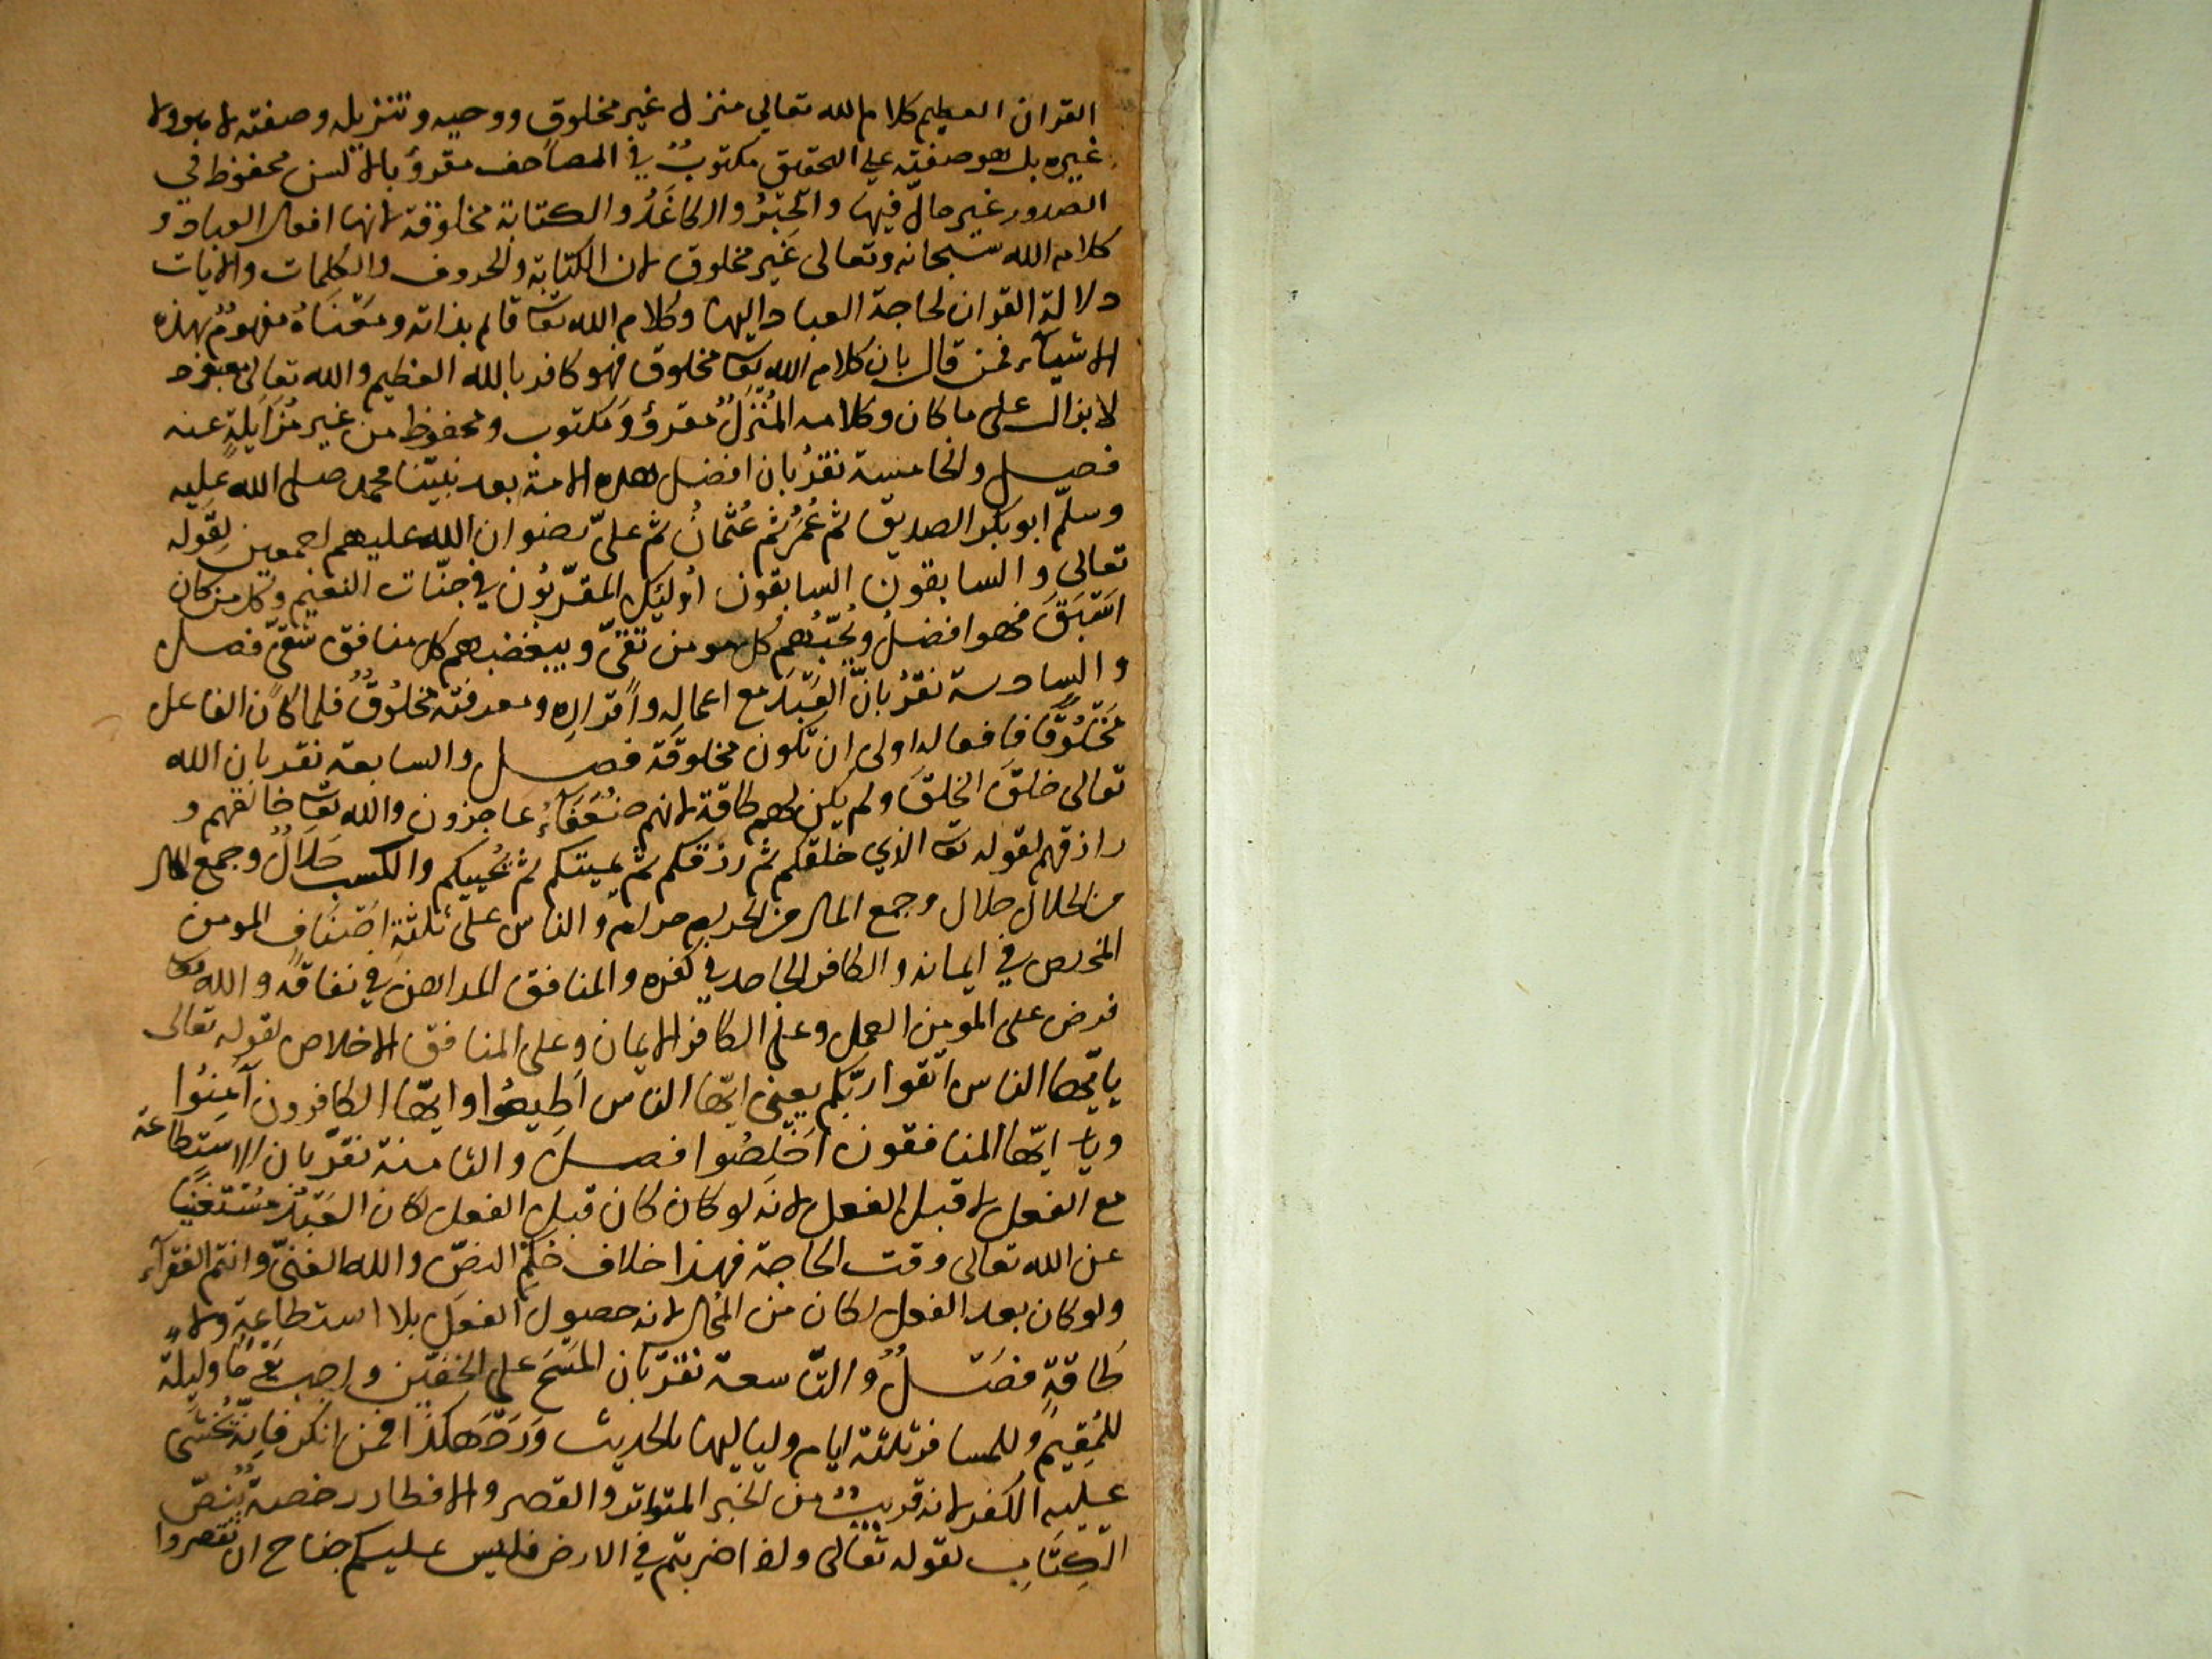 القران العظيم كلام الله تعالى منزل غير مخلوق ووحيه وتنزيله وصفته لا هو ولا
غيره بل هو صفته على التحقيق مكتوبٌ في المصاحف مقروٌ بالالسن محفوظ في
الصدور غير حالّ فيها والحِبْرُ والكاغَدُ والكتابة مخلوقة لانها افعال العباد و
كلام الله سبحانه وتعالى غير مخلوق لان الكتابة والحروف والكلمات والايات
دلالة القران لحاجة العباد اليها وكلام الله تعا قائم بذاته ومَعْنَاهُ مفهومٌ بهذه
الاشيآء فمن قال بان كلام الله تعا مخلوق فهو كافر بالله العظيم والله تعالى معبود
لا يزال على ما كان وكلامه المُنْزَلُ مقروٌ ومكتوب ومحفوظ من غير مُزَايَلةٍ عنه
فصل والخامسة نقرُ بان افضل هذه الامة بعد نبيّنا محمد صلى الله عليه
وسلّم ابو بكر الصديق ثم عُمَرُ ثم عُثْمانُ ثم علىّ رضوان الله عليهم اجمعين لِقَوله
تعالى والسابقون السابقون اولئك المقرّبُون في جنّات النعيم وكل من كان
اَسْبَقَ فهو افضلُ ويُحبّهُم كل مومن تقىّ ويبغضهم كل منافق شقىّ فصل
والسادسة نقرُ بانّ العَبْدَ مع اعماله واقرارِه ومعرفته مخلُوقٌ فلما كان الفاعل
مَخْلُوقًا فافعاله اولى ان تكون مخلوقَة فصل والسابعة نقر بان الله
تعالى خلقَ الخلقَ ولم يكن لهم طاقة لانهم ضُعَفَآءُ عاجزون والله تعا خالقهم و
رازقهم لقوله تعا الذي خلقكم ثم رزقكم ثم يميتكم ثم يُحييكم والكسب حَلَالٌ وجمع المال
من الحلال حلال وجمع المال من الحرام حرام والناس على ثلثةِ اَصْنَافٍ المومن
المخلص في ايمانه والكافر الجاحد في كفره والمنافق المداهن في نفاقه والله تعا
فرض على المومن العمل وعلى الكافر الايمان وعلى المنافق الاخلاص لقوله تعالى
يايّها الناس اتقوا ربّكم يعنى ايّها الناس اَطِيعُوا وايّها الكافرون آمِنُوا
ويا ايّها المنافقون اَخْلِصُوا فصل والثامنة نقرّ بان الاستطاعة
مع الفعل لا قبل الفعل لانَه لو كان كان قبل الفعل لكان العَبْدُ مُسْتَغْنِيًا
عن الله تعالى وقت الحاجة فهذا خلاف حكم النصّ والله الغنىّ وانتم الفقرآء
ولو كان بعد الفعل لكان من المُحال لانه حصول الفعل بلا استطاعةٍ ولا
طاقةٍ فصلٌ والتّاسعة نقرّ بان المَسْحَ على الخفين واجب يَوْمًا وليلة
للمُقِيم وللمسافر ثلثة ايام ولياليها بالحديث وَرَدَ هكذا فمن انكر فانّه يُخشَى
عليه الكفر لانه قريبٌ من الخبر المتواتر والقصر والافطار رخصةٌ بنصّ
الكِتَابِ لقوله تعالى واذا ضربتم في الارض فليس عليكم جناح ان تقصروا